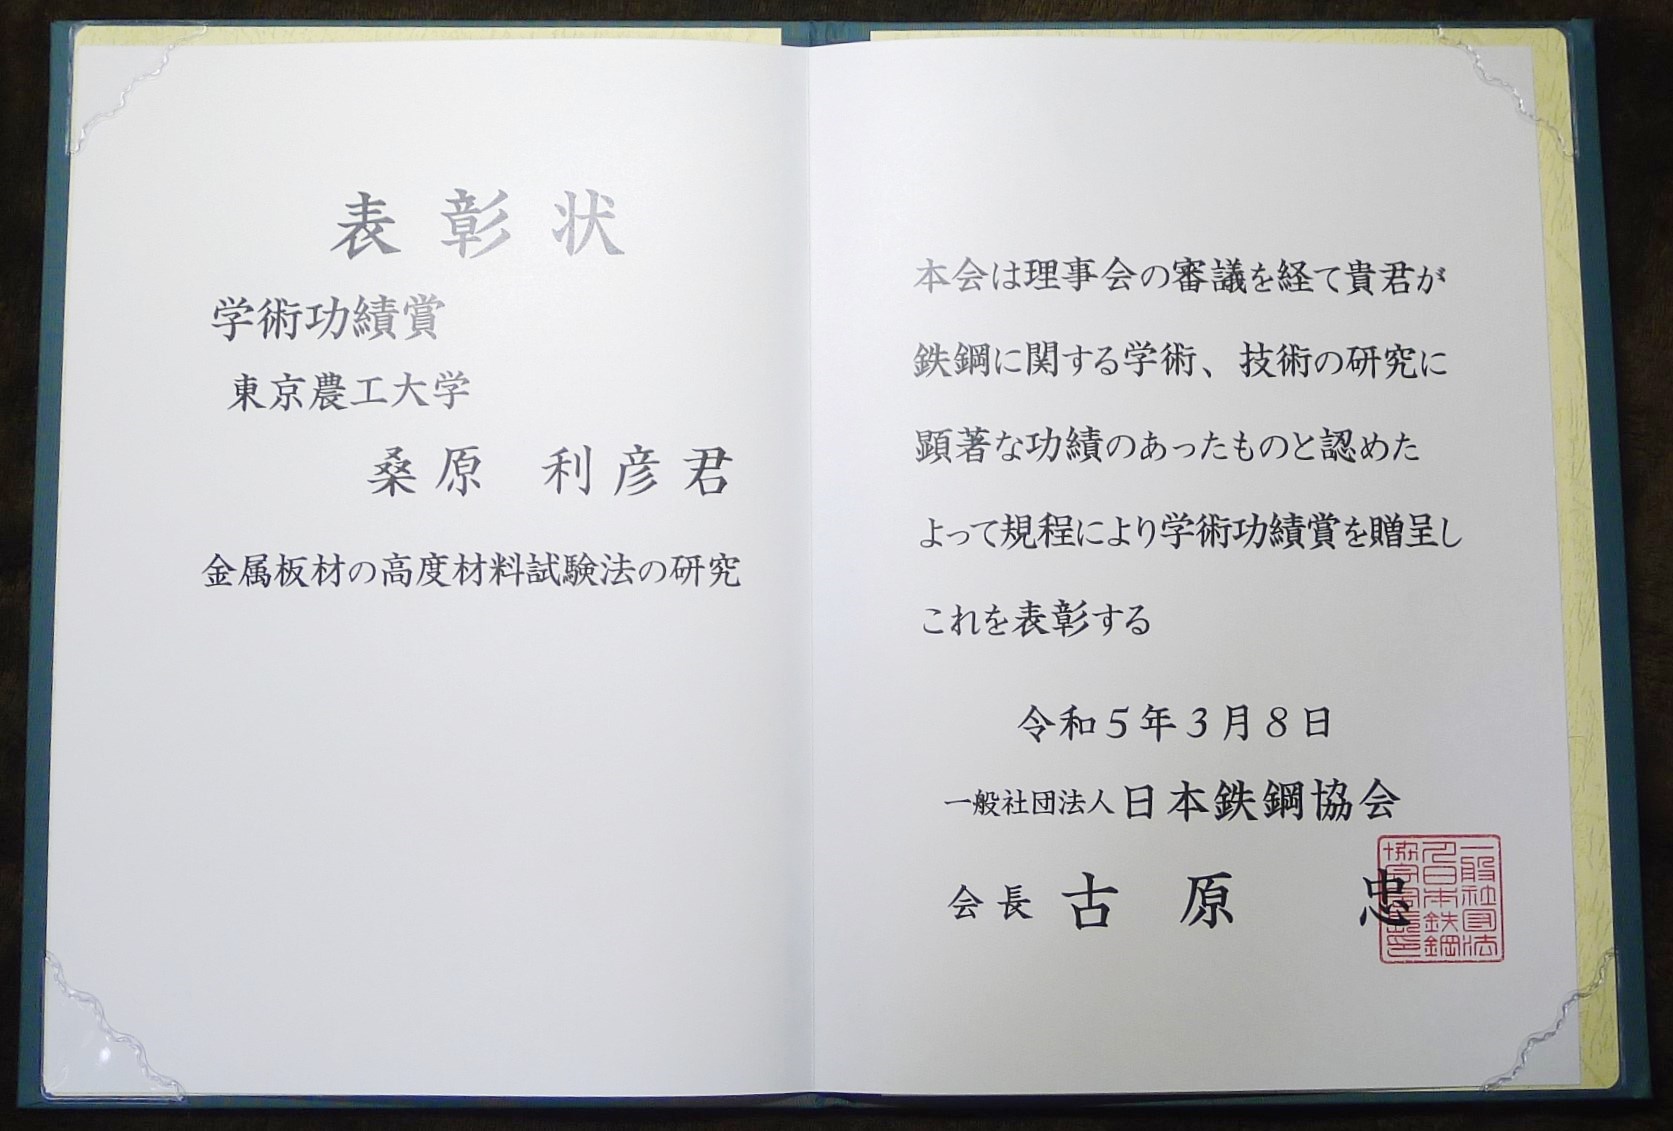 表彰状
学術功績賞
東京農工大学
桑原 利彦君
金属板材の高度材料試験法の研究
本会は理事会の審議を経て貴君が
鉄鋼に関する学術、技術の研究に
顕著な功績のあったものと認めた
よって規程により学術功績賞を贈呈し
これを表彰する
令和５年３月８日
一般社団法人日本鉄鋼協会
会長 古原 忠
一般社団法
人日本鉄鋼
協会会長印